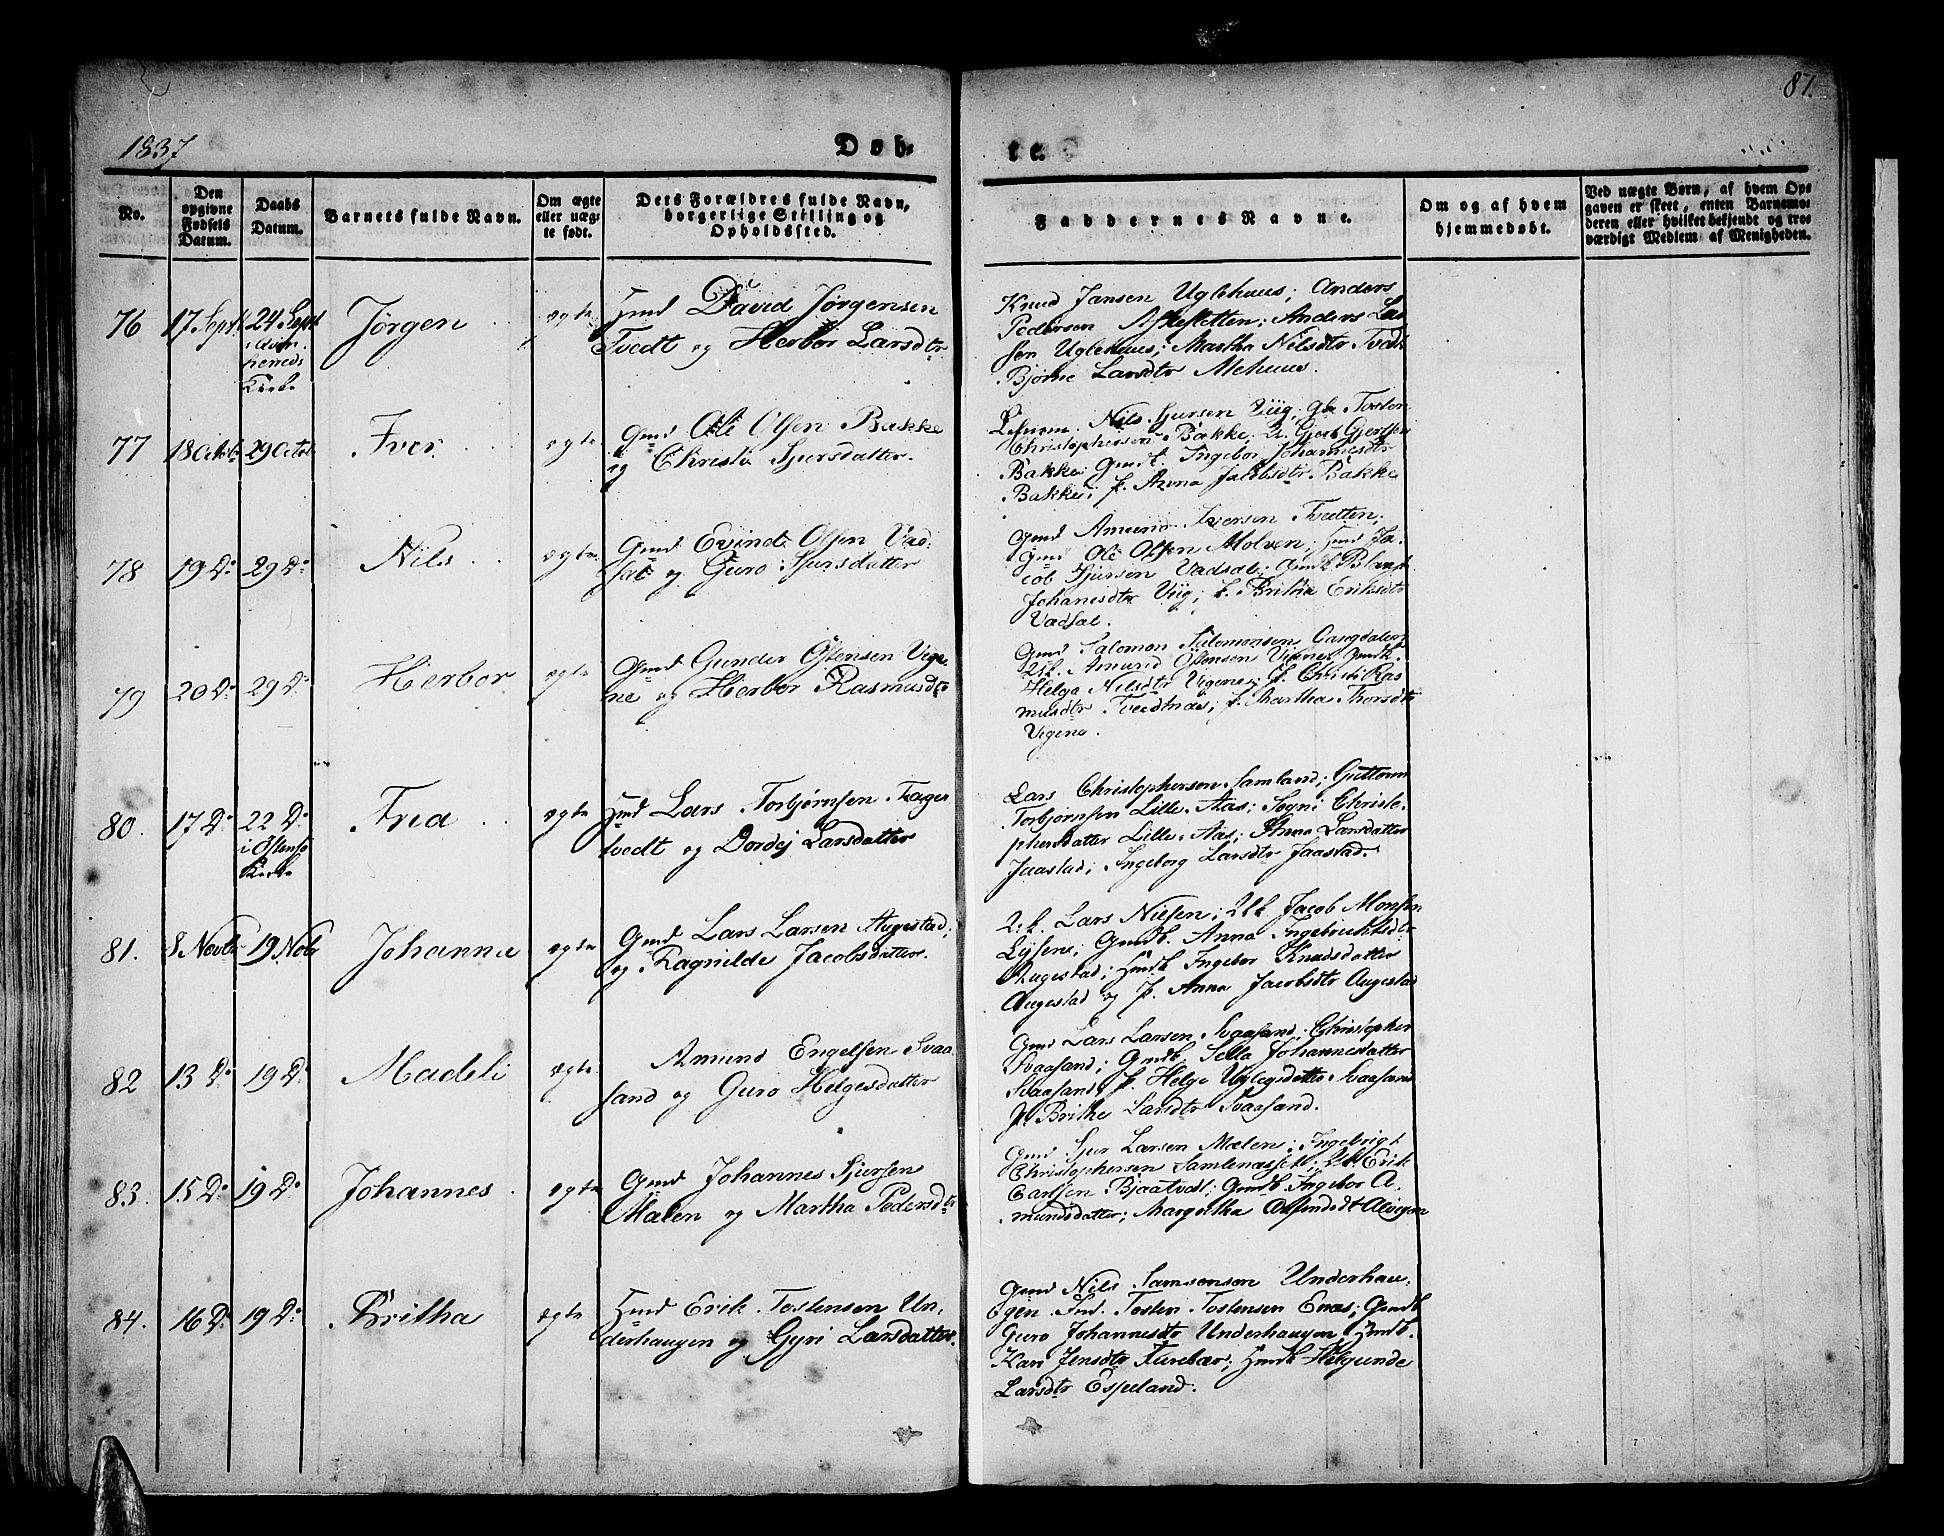 87.
1837
Døb-
te.
No.
Den
opgivne
Fødsels
Datum.
Daabs
Datum.
Barnets fulde Navn.
Om ægte
eller uæg-
te født.
Dets Forældres fulde Navn,
borgerlige Stilling og
Opholdssted.
Faddernes Navne.
Om og af hvem
hjemmedøbt.
Ved uægte Børn, af hvem Op-
gaven er skeet, enten Barnemo-
deren eller hvilket bekjendt og tro-
værdigt Medlem af Menigheden.
76 17 Septr 24 Sept
Kirke
Jørgen
ægte
Hmd David Jørgensen
Tvedt og Herbor Larsdtr
Knud Jansen Uglehuus; Anders
Pedersen Anders Lar
sen Uglehuus; Martha Nilsdtr Tvedt
Larsdtr Mehuus.
77 18 Octbr 29 Octbr
Iver
ægte
Gmd Ole Olsen Bakke
og Christi Sjursdatter.
Nils Sjursen Viig; Tosten
Christophersen Bakke; Gjert Gjertsen
Bakke; Gmdk. Ingebor Johannesdtr
Bakke; p. Anna Jacobsdtr Bakke
78 19 Do 29 Do
Nils
ægte
Gmd Evind Olsen Vad-
sal og Guro Sjursdatter
Gmd Amund Iversen Tvetten;
Gmd Ole Olsen Molven; Hmd Ja-
cob Sjursen Vadsal; Gmdk
Johanesdtr Viig; p. Britha Eriksdtr
Vadsal.
79 20 Do 29 Do
Herbor
ægte
Gmd Gunder Østensen Vige-
ne og Herbor Rasmusdtr
Gmd Salomon Salomonsen Gangdalen
Uk. Amund Østensen Vigene; Gmdk.
Helga Nilsdtr Vigene; p. Christi Ras
musdtr Tvedtnæs; p. Martha Thorsdtr
Vigene.
80. 17 Do 22 Do
i Østensø
Kirke
ægte
Hmd Lars Torbjørnsen Fager
tvedt og Dordej Larsdatter
Lars Christophersen Samland; Guttorm
Torbjørnsen Lille-Aas; Sogni Christo-
phersdatter Lille-Aas; Anna Larsdatter
Jaastad; Ingeborg Larsdtr Jaastad.
81. 8 Novbr 19 Nobr
Johanna
ægte
Gmd Lars Larsen Augestad;
og Ragnilde Jacobsdatter.
Uk. Lars Nielsen; Uk Jacob Monsen
Lysene; Gmdk. Anna Ingebrichtsdtr
Augestad; Hmdk Ingebor Knudsdatter
Augestad og p. Anna Jacobsdtr Augestad
82 13 Do 19 Do
Madeli
ægte
Amund Engelsen Svaa-
sand og Guro Helgesdatter
Gmd Lars Larsen Svaasand; Christopher
Svaasand; Gmdk. Sella Johannesdatter
Svaasand; p. Helga Svaasand
p. Brithe Larsdtr Svaasand.
83. 15 Do 19 Do
Johannes
ægte
Gmd Johannes Sjursen
Mælen og Martha Pedersdtr
Gmd Sjur Larsen Mælen; Ingebrigt
Christophersen Samlenæsset; Uk Erik
Carlsen Bjaatvedt; Gmdk. Ingebor A-
mundsdatter; Margretha
84. 16 Do 19 Do
Britha
ægte
Hmd Erik Tostensen Un-
derhaugen og Gyri Larsdatter.
Gmd Nils Samsonsen Underhau-
gen. Tosten Tostensen Enæs; Gmdk
Guro Johannesdtr Underhaugen. Hmdk.
Kari Jensdtr Furebær; Hmdk Helgunde
Larsdtr Espeland.